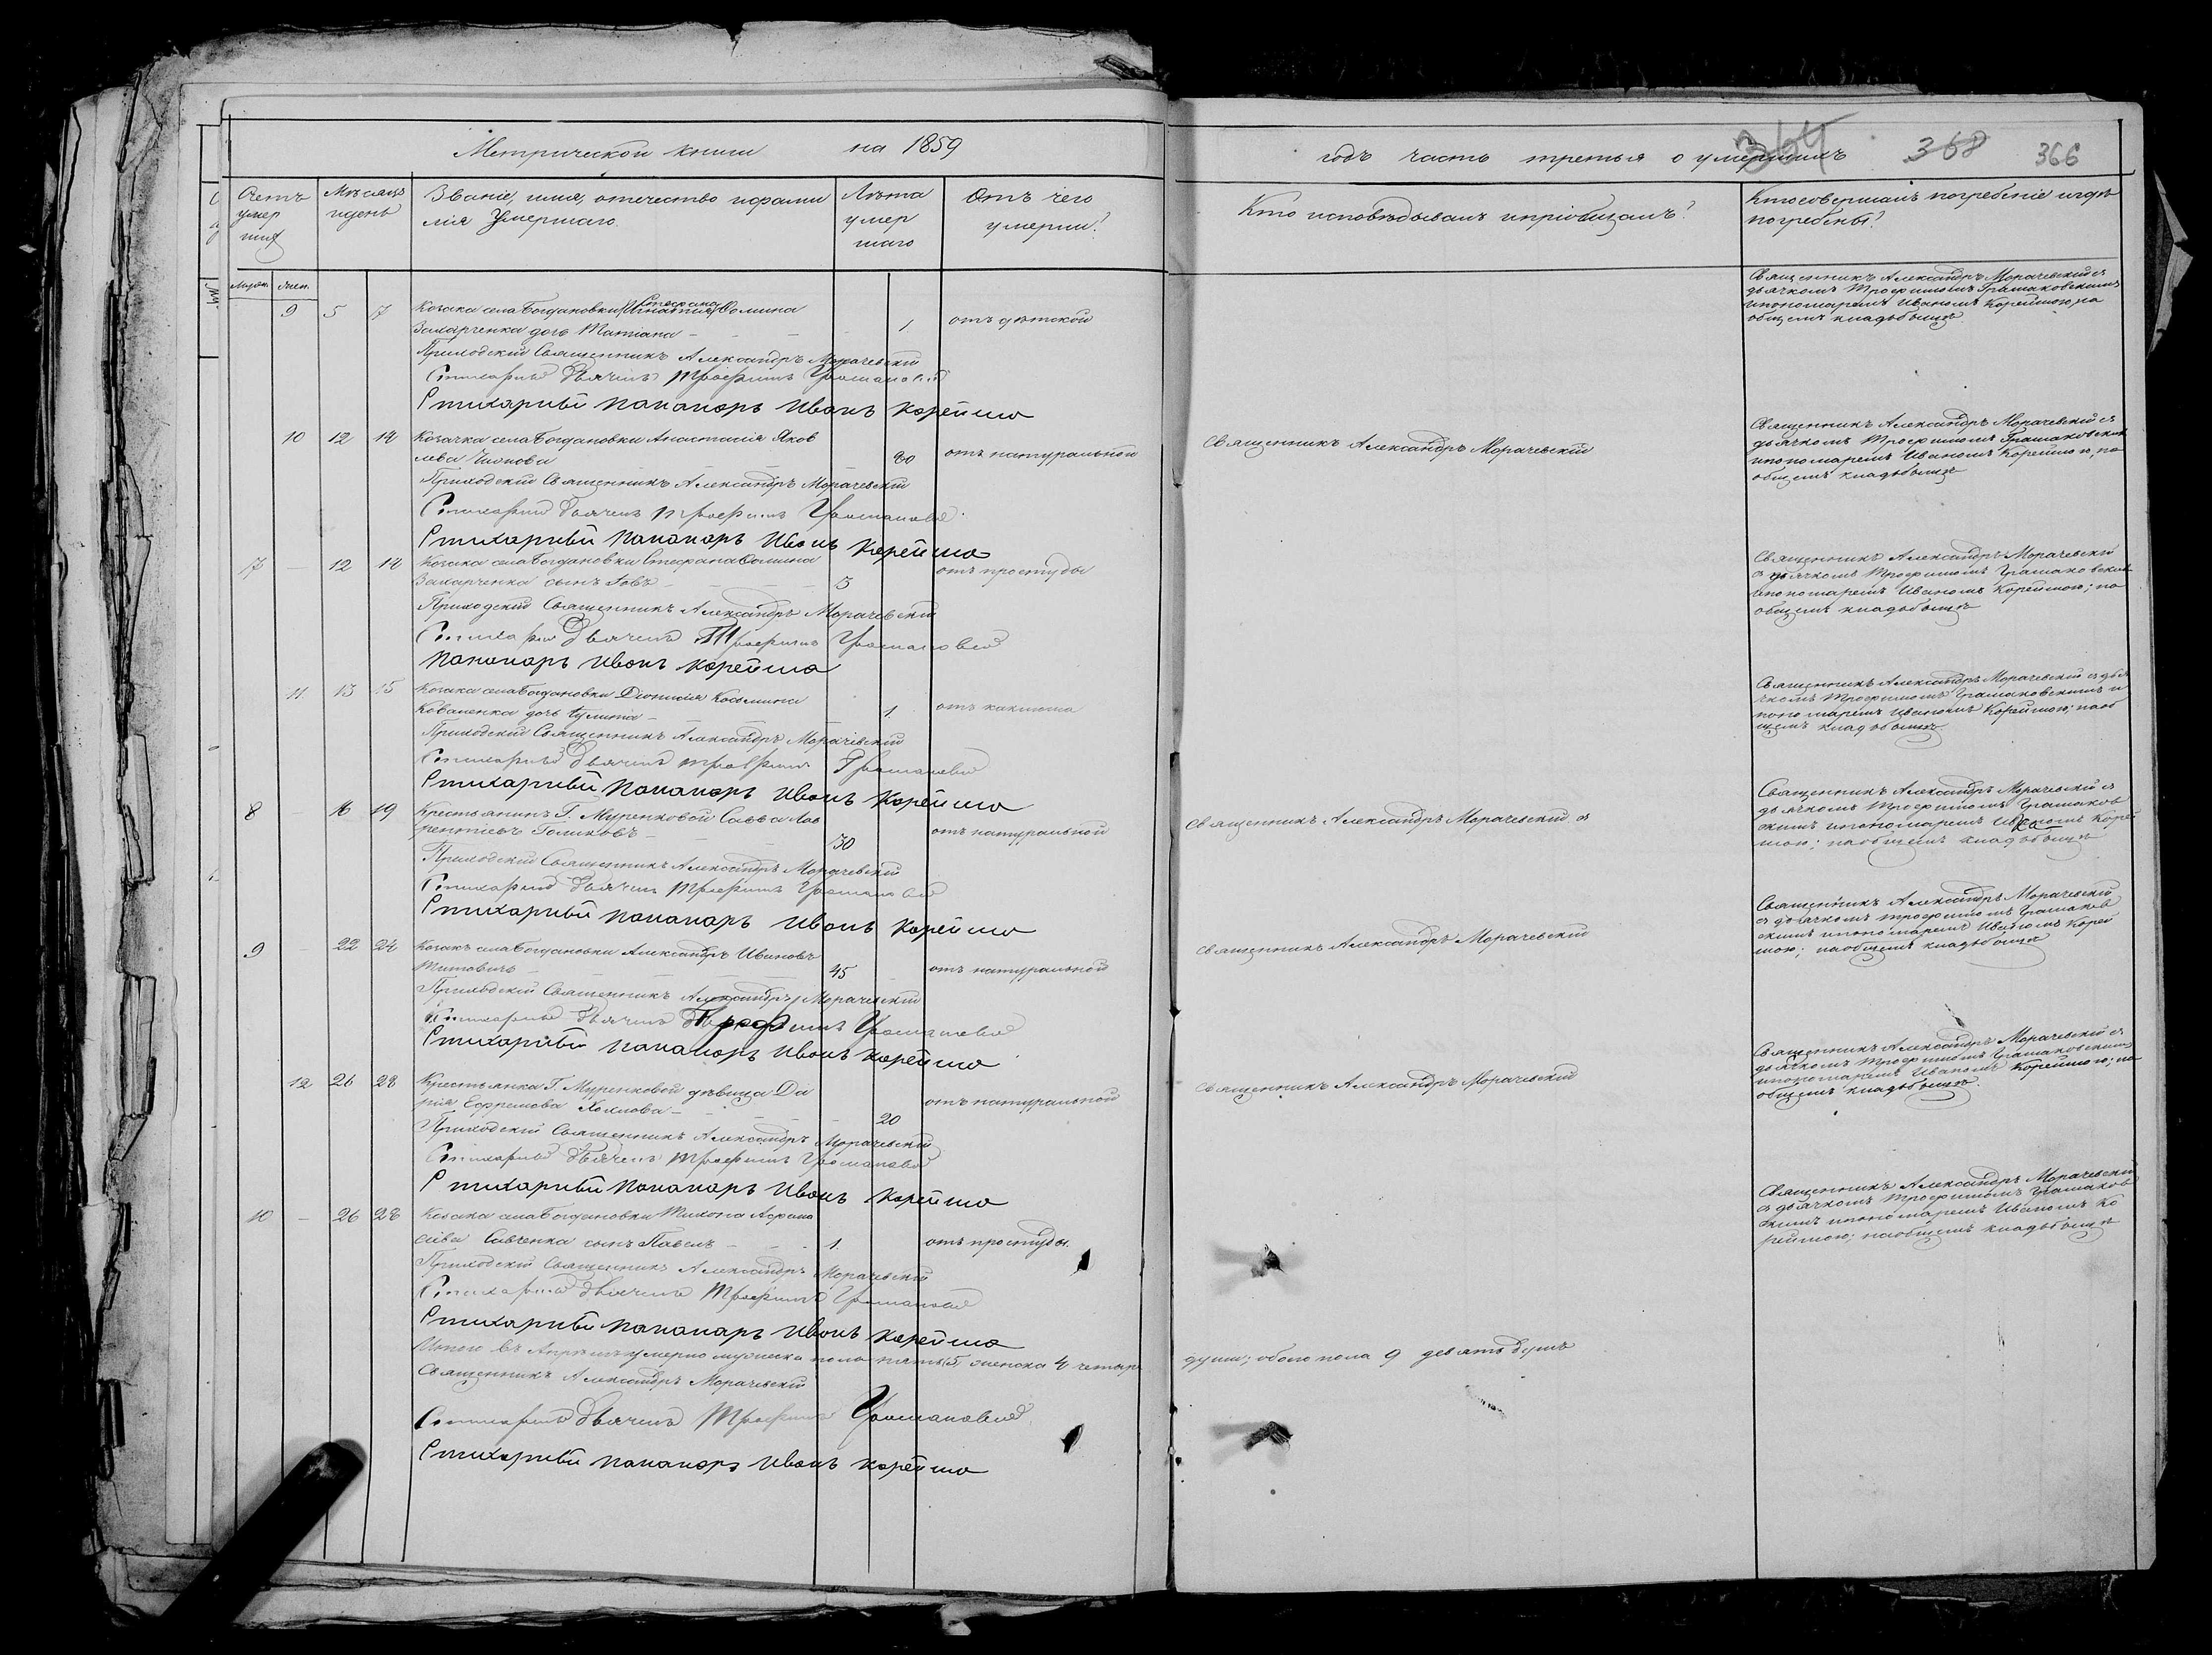 Метрической книги на 1859
Счетъ умер шихъ
Мѣсяцъ и день
Званіе, имя, отечество и фами
лія Умершаго.
Лѣта умер шаго
Отъ чего умерли?
9 5 7 Козака села Богдановки Стефана Фомина
Захарченка дочь Татіана 1 отъ дѣтской
Приходскій Священникъ Александръ Морачевскій
Стихарный Дьячекъ Трофимъ
Стихарный Панамарь Иванъ Корейша
10 12 14 Козачка села Богдановки Анастасія Яков
лева 80 отъ натуральной
Приходскій Священникъ Александръ Морачевскій
Стихарный Дьячекъ Трофимъ
Стихарный Панамарь Иванъ Корейша
7 12 14 Козака села Богдановки Стефана Фомина
Захарченка сынъ 5 отъ простуды
Приходскій Священникъ Александръ Морачевскій
Стихарный Дьячекъ Трофимъ
Панамарь Иванъ Корейша
11 13 15 Козака села Богдановки Діонисія Косьмина
Коваленка дочь 1 отъ кашлюка
Приходскій Священникъ Александръ Морачевскій
Стихарный Дьячекъ Трофимъ
Стихарный Панамарь Иванъ Корейша
8 16 19 Крестьянинъ Г. Муренковой Савва Лав
рентіевъ Голиковъ 30 отъ натуральной
Приходскій Священникъ Александръ Морачевскій
Стихарный Дьячекъ Трофимъ
Стихарный Панамарь Иванъ Корейша
9 22 24 Козакъ села Богдановки Александръ Ивановъ
Титовичъ 45 отъ натуральной
Приходскій Священникъ Александръ Морачевскій
Стихарный Дьячекъ Трофимъ
Стихарный Панамарь Иванъ Корейша
12 26 28 Крестьянка Г. Муренковой дѣвица Да
рія Ефремова 20 отъ натуральной
Приходскій Священникъ Александръ Морачевскій
Стихарный Дьячекъ Трофимъ
Стихарный Панамарь Иванъ Корейша
10 26 28 Козака села Богдановки Тихона Афана
сіева Савченка сынъ Павелъ 1 отъ простуды
Приходскій Священникъ Александръ Морачевскій
Стихарный Дьячекъ Трофимъ
Стихарный Панамарь Иванъ Корейша
Итого въ Апрѣлѣ умерло мужеска пола пять 5, женска 4 четыре
Священникъ Александръ Морачевскій
Стихарный Дьячекъ Трофимъ
Стихарный Панамарь Иванъ Корейша
годъ часть третья о умершихъ 364 368 366
Кто исповѣдывалъ и пріобщалъ?
Кто совершалъ погребеніе и гдѣ
погребены?
Священникъ Александръ Морачевскій съ
дьячкомъ Трофимомъ Грамаковскимъ
и пономаремъ Иваномъ Корейшою, на
общемъ кладьбищѣ
Священникъ Александръ Морачевскій
Священникъ Александръ Морачевскій съ
дьячкомъ Трофимомъ Грамаковским
и пономаремъ Иваномъ Корейшою, на
общемъ кладьбищѣ
Священникъ Александръ Морачевскій
съ дьячкомъ Трофимомъ Грамаковским
и пономаремъ Иваномъ Корейшою; на
общемъ кладьбищѣ
Священникъ Александръ Морачевскій съ дья
чкомъ Трофимомъ Грамаковскимъ и
пономаремъ Иваномъ Корейшою; на об
щемъ кладьбищѣ
Священникъ Александръ Морачевскій
Священникъ Александръ Морачевскій съ
дьячкомъ Трофимомъ Грамаков
скимъ и пономаремъ Иваномъ Корей
шою; на общемъ кладьбищѣ
Священникъ Александръ Морачевскій
Священникъ Александръ Морачевскій
съ дьячкомъ Трофимомъ Грамаков
скимъ и пономаремъ Иваномъ Корей
шою; на общемъ кладьбищѣ
Священникъ Александръ Морачевскій
Священникъ Александръ Морачевскій съ
дьячкомъ Трофимомъ Грамаковскимъ
и пономаремъ Иваномъ Корейшою; на
общемъ кладьбищѣ
Священникъ Александръ Морачевскій
съ дьячкомъ Трофимомъ Грамаков
скимъ и пономаремъ Иваномъ Ко
рейшою; на общемъ кладьбищѣ
души; обоего пола 9 девять душъ